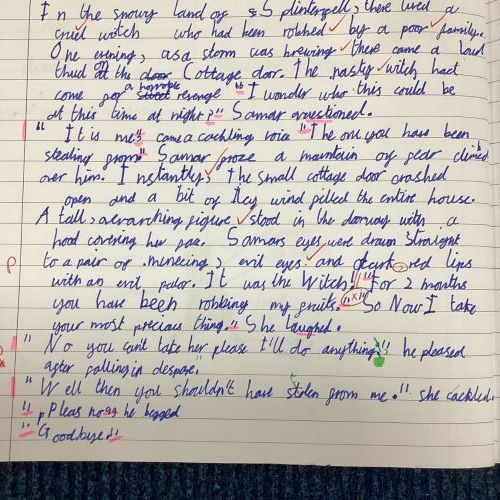 In the snowy land of Splintergell, there lived a
cruel witch who had been robbed by a poor family.
One evening, as a storm was brewing there came a loud
thud on the door Cottage door. The nasty witch had
come for a horrible sweet revenge "I wonder who this could be
at this time at night?" Samar questioned.
"It is me" came a cackling voice "The one you have been
stealing from" Samar froze a mountain of fear climed
over him. Instantly, the small cottage door crashed
open and a bit of Icy wind filled the entire house.
A tall, overarching figure stood in the doorway with a
hood covering her face. Samars eyes were drawn straight
p to a pair of menecing, evil eyes and red lips
with an evil It was the Witch! "For 2 months
you have been robbing my fruits. So Now I take
your most precious thing." She laughed.
"No you can't take her please I'll do anything" he pleased
after falling in despare.
"Well then you shouldn't have stolen from me." she cackled.
"pPleas no he begged
"Goodbye"